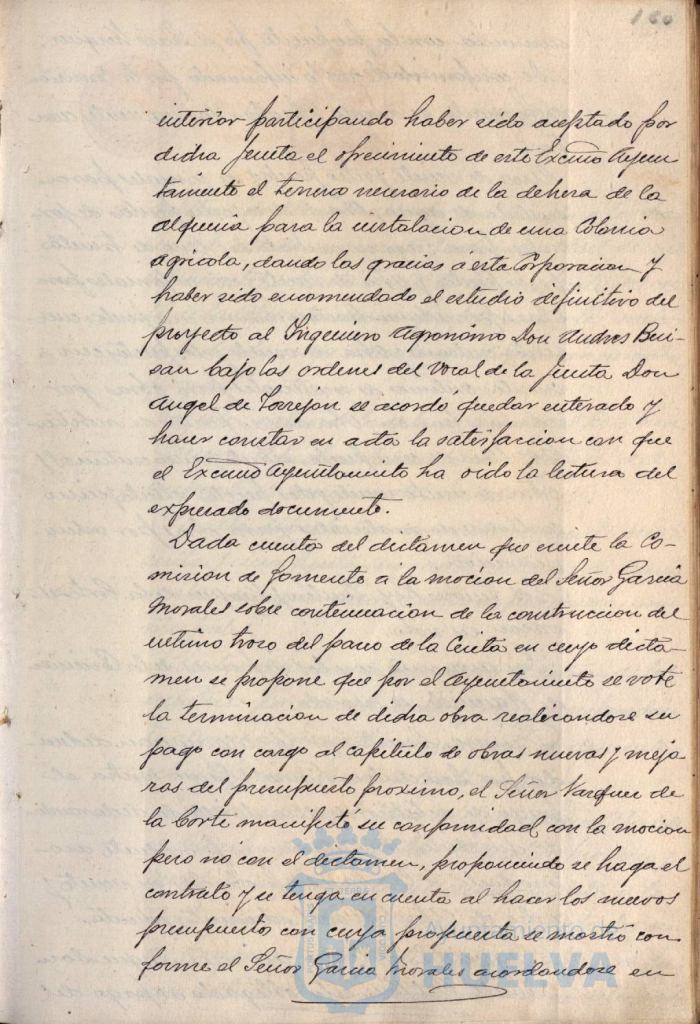 160
interior participando haber sido aceptado por
dicha Junta el ofrecimiento de este Excmo Ayun
tamiento el terreno necesario de la dehesa de la
alqueria para la instalacion de una Colonia
agricola, dando las gracias á esta Corporacion y
haber sido encomendado el estudio definitivo del
proyecto al Ingeniero agronómo Don Andres Bui-
san bajo las ordenes del Vocal de la Junta Don
Angel de Torrejon se acordó quedar enterado y
hacer constar en acta la satisfaccion con que
el Excmo Ayuntamiento ha oido la lectura del
expresado documento.
Dada cuenta del dictamen que emite la Co-
mision de Fomento á la mocion del Señor Garcia
Morales sobre continuacion de la construccion del
ultimo trozo del paseo de la Cinta en cuyo dicta-
men se propone que por el Ayuntamiento se vote
la terminacion de dicha obra realizandose su
pago con cargo al capitulo de obras nuevas y mejo
ras del presupuesto proximo, el Señor Vazquez de
la Corte manifestó su conformidad con la mocion
pero nó con el dictamen, proponiendo se haga el
contrato y se tenga en cuenta al hacer los nuevos
presupuestos con cuya propuesta se mostró con
forme el Señor Garcia Morales acordandose en
HUELVA